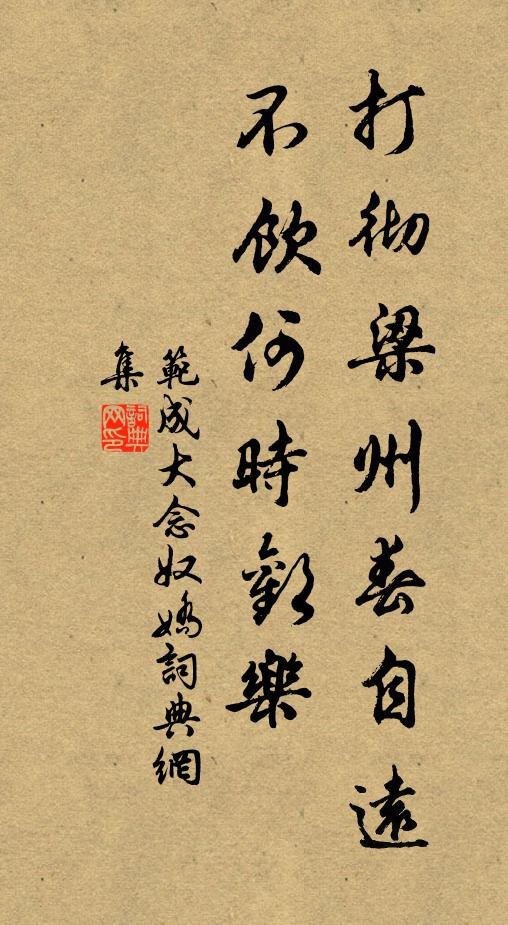 打彻梁州春自遠
不飲何時歡樂
範成大念奴嬌詞典網
集
詞典
网印